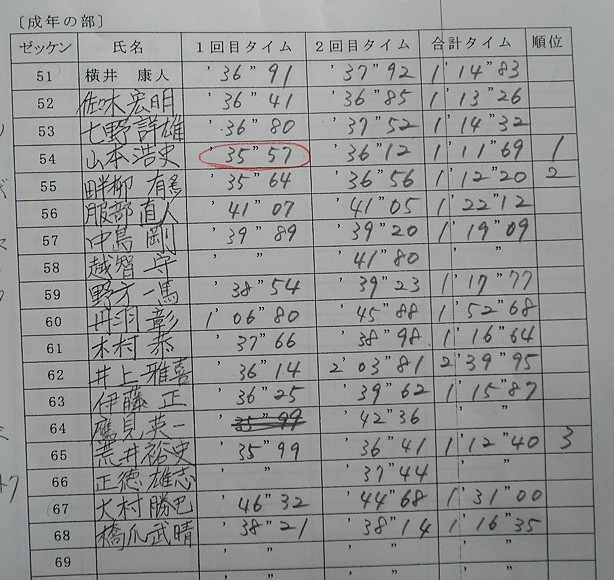 〔成年の部〕
ゼッケン 氏名 1回目タイム 2回目タイム 合計タイム 順位
51 横井 康人 '36"91 '37"92 1'14"83
52 佐々木宏明 '36"41 '36"85 1'13"26
53 七野 詳雄 '36"80 '37"52 1'14"32
54 山本浩史 '35"57 '36"12 1'11"69 1
55 畔柳 '35"64 '36"56 1'12"20 2
56 服部直人 '41"07 '41"05 1'22"12
57 中島 剛 '39"89 '39"20 1'19"09
58 越智 守 ' " '41"80 ' "
59 野方 一馬 '38"54 '39"23 1'17"77
60 丹羽 彰 1'06"80 '45"88 1'52"68
61 木村 恭 '37"66 '38"98 1'16"64
62 井上雅喜 '36"14 2'03"81 2'39"95
63 伊藤 正 '36"25 '39"62 1'15"87
64 鷹見英一 '35"99 '42"36 ' "
65 荒井裕史 '35"99 '36"41 1'12"40 3
66 正徳雄志 ' " '37"44 ' "
67 大村勝巳 '46"32 '44"68 1'31"00
68 橋爪武晴 '38"21 '38"14 1'16"35
69 ' " ' " ' "